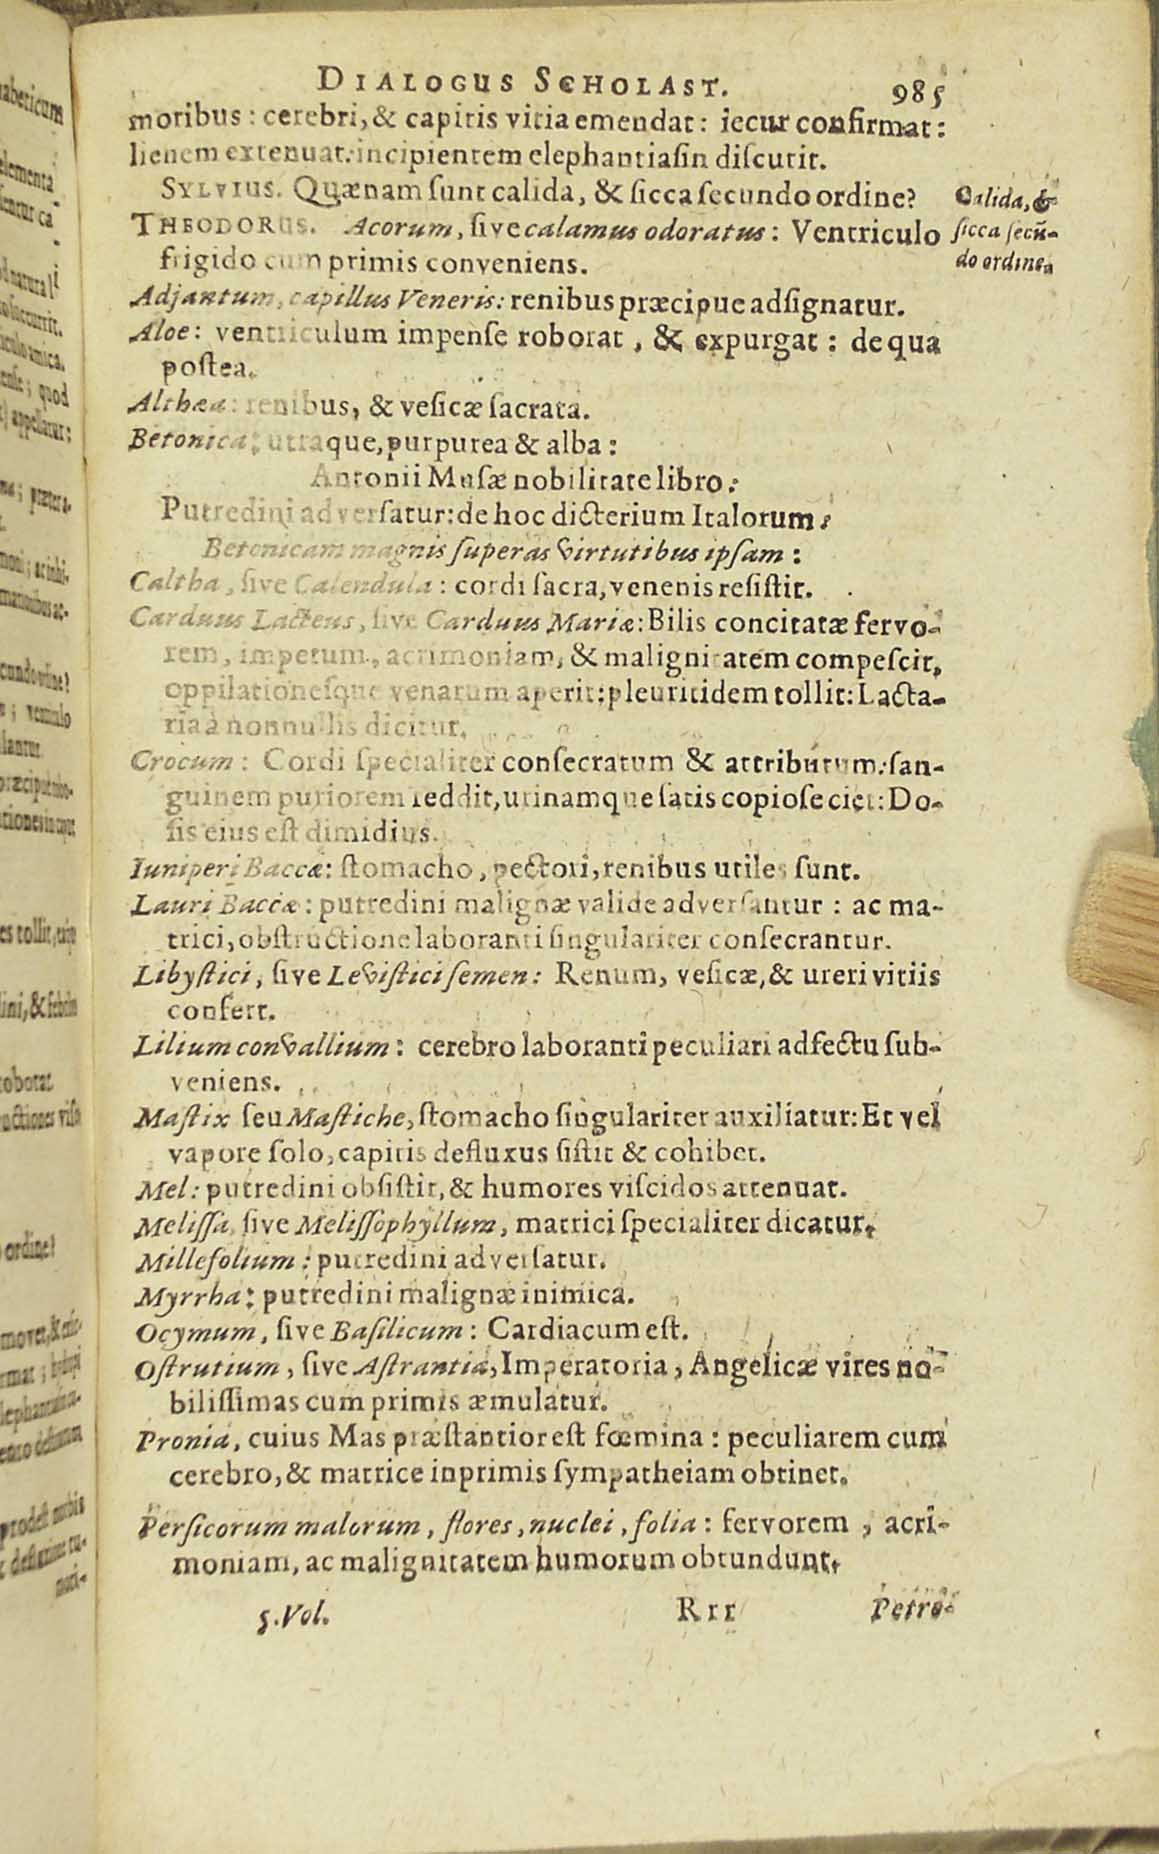 DIALOGUS SCHOLAST. 985
moribus : cerebri, & capitis vitia emendat : iecur confirmat :
lienem extenuat: incipientem elephantiasin discutit.
SYLVIUS. Quænam sunt calida, & sicca secundo ordine?
Calida, &
sicca secũ-
do ordine.
THEODORUS. Acorum, sive calamus odoratus : Ventriculo
frigido cum primis conveniens.
Adjantum, capillus Veneris : renibus præcipue adsignatur.
Aloe : ventriculum impense roborat, & expurgat : de qua
postea.
Althæa : renibus, & vesicæ sacrata.
Betonica : utraque, purpurea & alba :
Antonii Musæ nobilitate libro :
Putredini adversatur : de hoc dicterium Italorum :
Betonicam magnis superas virtutibus ipsam :
Caltha, sive Calendula : cordi sacra, venenis resistit.
Carduus Lacteus, sive Carduus Mariæ : Bilis concitatæ fervo-
rem, impetum, acrimoniam, & malignitatem compescit,
oppilationesque venarum aperit : pleuritidem tollit : Lacta-
ria à nonnullis dicitur.
Crocum : Cordi specialiter consecratum & attributum : san-
guinem puriorem reddit, urinamque satis copiose ciet : Do-
sis eius est dimidius.
Iuniperi Baccæ : stomacho, pectori, renibus utiles sunt.
Lauri Baccæ : putredini malignæ valide adversantur : ac ma-
trici, obstructione laboranti singulariter consecrantur.
Libystici, sive Levistici semen : Renum, vesicæ, & ureri vitiis
confert.
Lilium convallium : cerebro laboranti peculiari adfectu sub-
veniens.
Mastix seu Mastiche, stomacho singulariter auxiliatur : Et vel
vapore solo, capitis defluxus sistit & cohibet.
Mel : putredini obsistit, & humores viscidos attenuat.
Melissa, sive Melissophyllum, matrici specialiter dicatur.
Millefolium : putredini adversatur.
Myrrha : putredini malignæ inimica.
Ocymum, sive Basilicum : Cardiacum est.
Ostrutium, sive Astrantia, Imperatoria, Angelicæ vires no-
bilissimas cum primis æmulatur.
Pronia, cuius Mas præstantior est fœmina : peculiarem cum
cerebro, & matrice inprimis sympatheiam obtinet.
Persicorum malorum, flores, nuclei, folia : fervorem, acri-
moniam, ac malignitatem humorum obtundunt.
5. Vol. Rrr Petro-